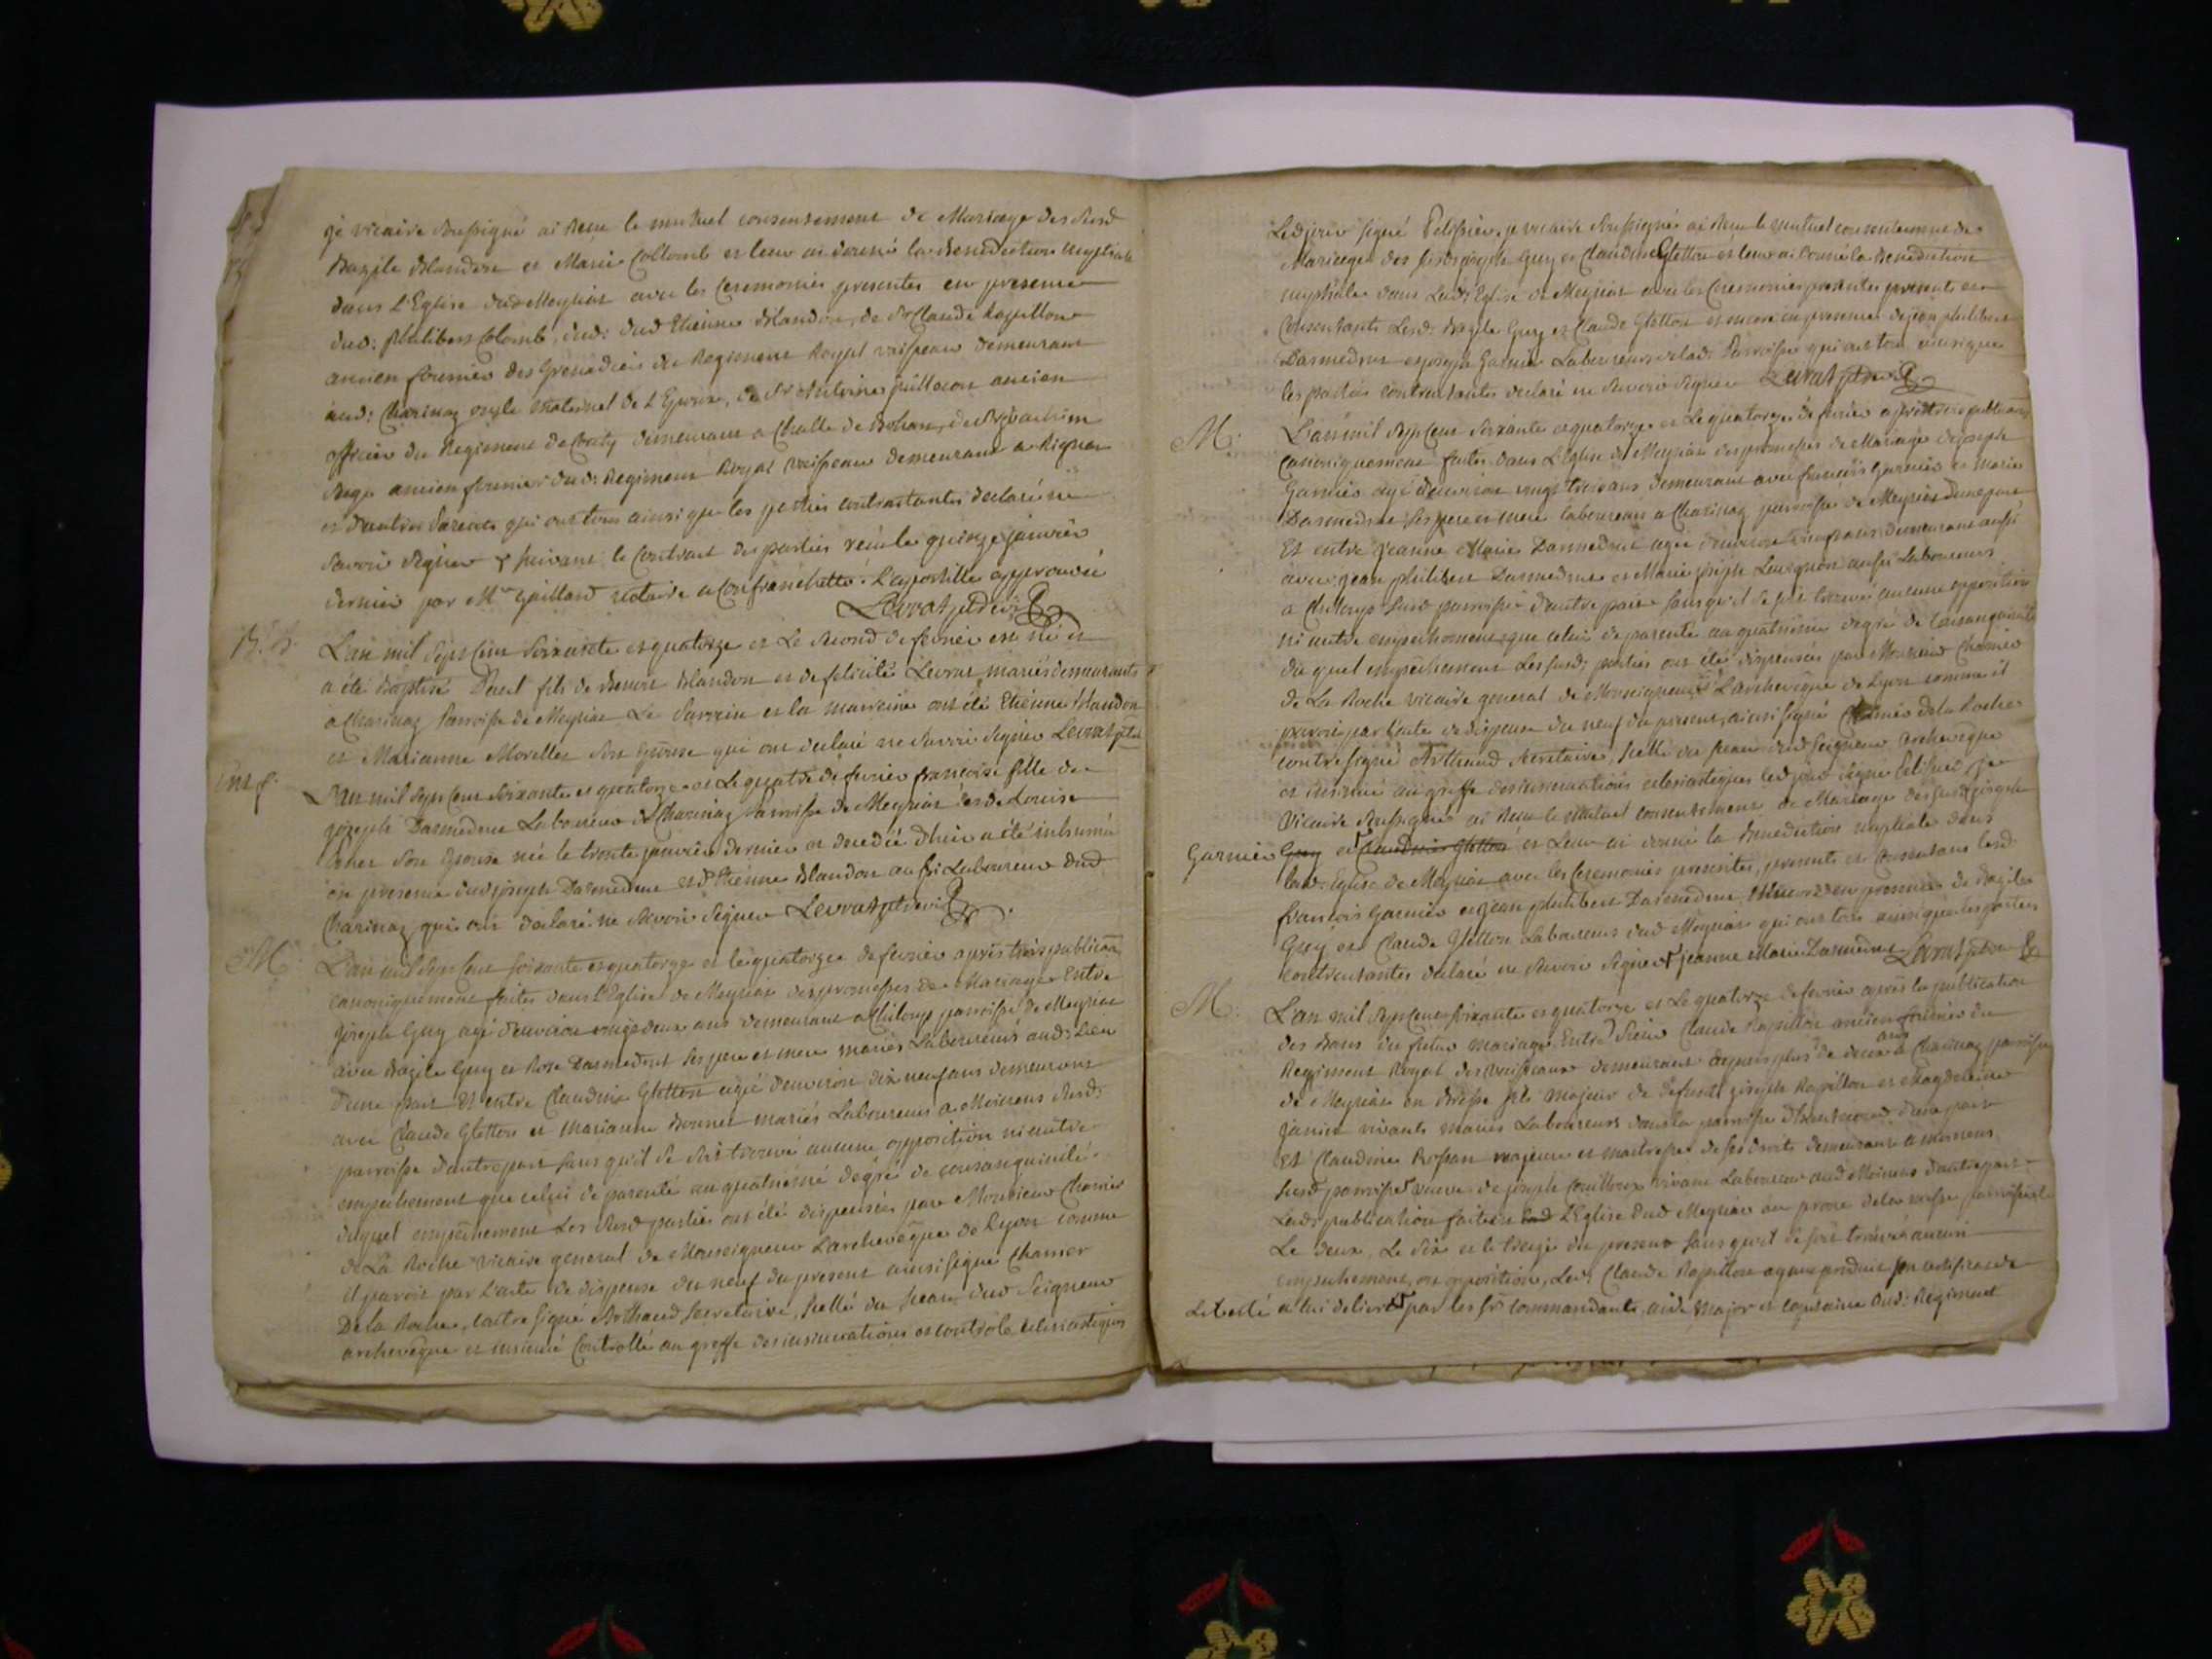 je vicaire soussigné ai Reçu le mutuel consentement de Mariage des susd
Bazile Blandon et Marie Collomb et leur ai donné la Benediction nuptiale
dans L'Eglise dud Meyriat avec les Ceremonies presentes en presence
dud: Philibert Colomb, dud: Etienne Blandon, de Sr Claude Rapillon
ancien fourrier des Grenadiers du Regiment Royal vaisseau demeurant
aud: Charinaz oncle maternel de L'Epoux, de Sr Antoine Guillon ancien
officier du Regiment de Conty demeurant a Challe de Bohan, de Sr Joachim
ancien fourrier dud: Regiment Royal vaisseau demeurant a Rignat
et d'autres Parents qui ont tous ainsi que les parties contractantes declaré ne
savoir signer suivant le Contract des parties reçu le quinze janvier
dernier par Me Gaillard notaire a Confranchette. L'apostille approuvée
Levrat ptre vic
B. f. L'an mil sept Cent soixante et quatorze et Le second de fevrier est né et
a été Baptisé fils de Benoit Blandon et de felicité Levrat mariés demeurants
a Charinaz Parroisse de Meyriat Le Parrein et la marreine ont été Etienne Blandon
et Marianne Morellet son Epouse qui ont declaré ne savoir signer Levrat ptre
Ent f. L'an mil sept Cent soixante et quatorze et Le quatre de fevrier françoise fille de
joseph Darmedrue Laboureur de Charinaz Parroisse de Meyriat et de Louise
son Epouse née le trente janvier dernier et decedée d'hier a été inhumée
en presence dud joseph Darmedrue et d'Etienne Blandon aussi Laboureur dud
Charinaz qui ont declaré ne savoir signer Levrat ptre vic
M. L'an mil sept Cent soixante et quatorze et le quatorze de fevrier après trois publicaons
canoniquement faites dans L'Eglise de Meyriat des promesses de Mariage Entre
joseph Guy agé d'environ vingt deux ans demeurant a Chiloup parroisse de Meyriat
avec Bazile Guy et Rose Darmedrue ses pere et mere mariés Laboureurs aud: Lieu
d'une part Et entre Claudine Gletton agée d'environ dix neuf ans demeurant
avec Claude Gletton et Marianne Bonnet mariés Laboureurs a Moinens susd:
parroisse d'autre part sans qu'il se soit trouvé aucune opposition ni autre
empechement que celui de parenté au quatrieme degré de consanguinité
duquel empechement Les susd parties ont été dispensées par Monsieur Charrier
de La Roche vicaire general de Monseigneur L'archevêque de Lyon comme
il paroit par L'acte de dispense du neuf du present ainsi signé Charrier
De la Roche, contre signé Arthaud Secretaire, scellé du sceau dud Seigneur
archevêque et insinué Controllé au greffe des insinuations et controle eclesiastiques
Led jour signé Pelissier, je vicaire soussigné ai Reçu le mutuel consentement de
Mariage des susd joseph Guy et Claudine Gletton et leur ai donné la Benediction
nuptiale dans Lad: Eglise de Meyriat avec les Ceremonies presentes presents et
Consentants Lesd: Bazile Guy et Claude Gletton et encore en presence de jean philibert
Darmedrue et joseph Garnier Laboureurs de lad: Parroisse qui ont tous ainsi que
les parties contractantes declaré ne savoir signer Levrat ptre vic
M. L'an mil sept Cent soixante et quatorze et Le quatorze de fevrier après trois publicaons
canoniquement faites dans L'Eglise de Meyriat des promesses de Mariage de joseph
Garnier agé d'environ vingt trois ans demeurant avec francois Garnier et Marie
Darmedrue ses pere et mere laboureurs a Charinaz parroisse de Meyriat d'une part
Et entre jeanne Marie Darmedrue agée d'environ ans demeurant aussi
avec jean philibert Darmedrue et Marie joseph aussi Laboureurs
a Chiloup susd parroisse d'autre part sans qu'il se soit trouvé aucune opposition
ni autre empechement que celui de parenté au quatrieme degré de consanguinité
du quel empechement Les susd: parties ont été dispensées par Monsieur Charrier
de La Roche vicaire general de Monseigneur L'archevêque de Lyon comme il
paroit par L'acte de dispense du neuf du present, ainsi signé Charrier de la Roche
contre signé Arthaud Secretaire, scellé du sceau dud Seigneur archevêque
et insinué au greffe des insinuations eclesiastiques led jour signé Pelissier, je
Vicaire soussigné ai Reçu le mutuel consentement de Mariage des susd joseph
Garnier Guy et Claudine Gletton et Leur ai donné la Benediction nuptiale dans
lad: Eglise de Meyriat avec les Ceremonies presentes, presents et Consentans lesd:
francois Garnier et jean philibert Darmedrue, encore en presence de Bazile
Guy et Claude Gletton Laboureurs dud Meyriat qui ont tous ainsi que les parties
contractantes declaré ne savoir signer jeanne Marie Darmedrue Levrat ptre
M. L'an mil sept Cent soixante et quatorze et Le quatorze de fevrier après la publication
des Bans du futur mariage Entre Sieur Claude Rapillon ancien fourrier du
Regiment Royal des vaisseaux demeurant depuis plus de deux ans a Charinaz parroisse
de Meyriat en Bresse fils majeur de defunts joseph Rapillon et Magdeleine
Janier vivants mariés Laboureurs dans la parroisse d'une part
Et Claudine Rossan majeure et maitresse de ses droits demeurant a Moinens
susd parroisse veuve de joseph Couilloux vivant Laboureur aud Moinens d'autre part
Lad: publication faite en lad L'Eglise dud Meyriat au prone de la messe parroissiale
Le deux, Le six et le treize du present sans qu'il se soit trouvé aucun
empechement, ou opposition, Led: Claude Rapillon ayant produit son certificat de
Liberté a lui delivré par les srs Commandants, aide Major et Capitaine dud: Regiment